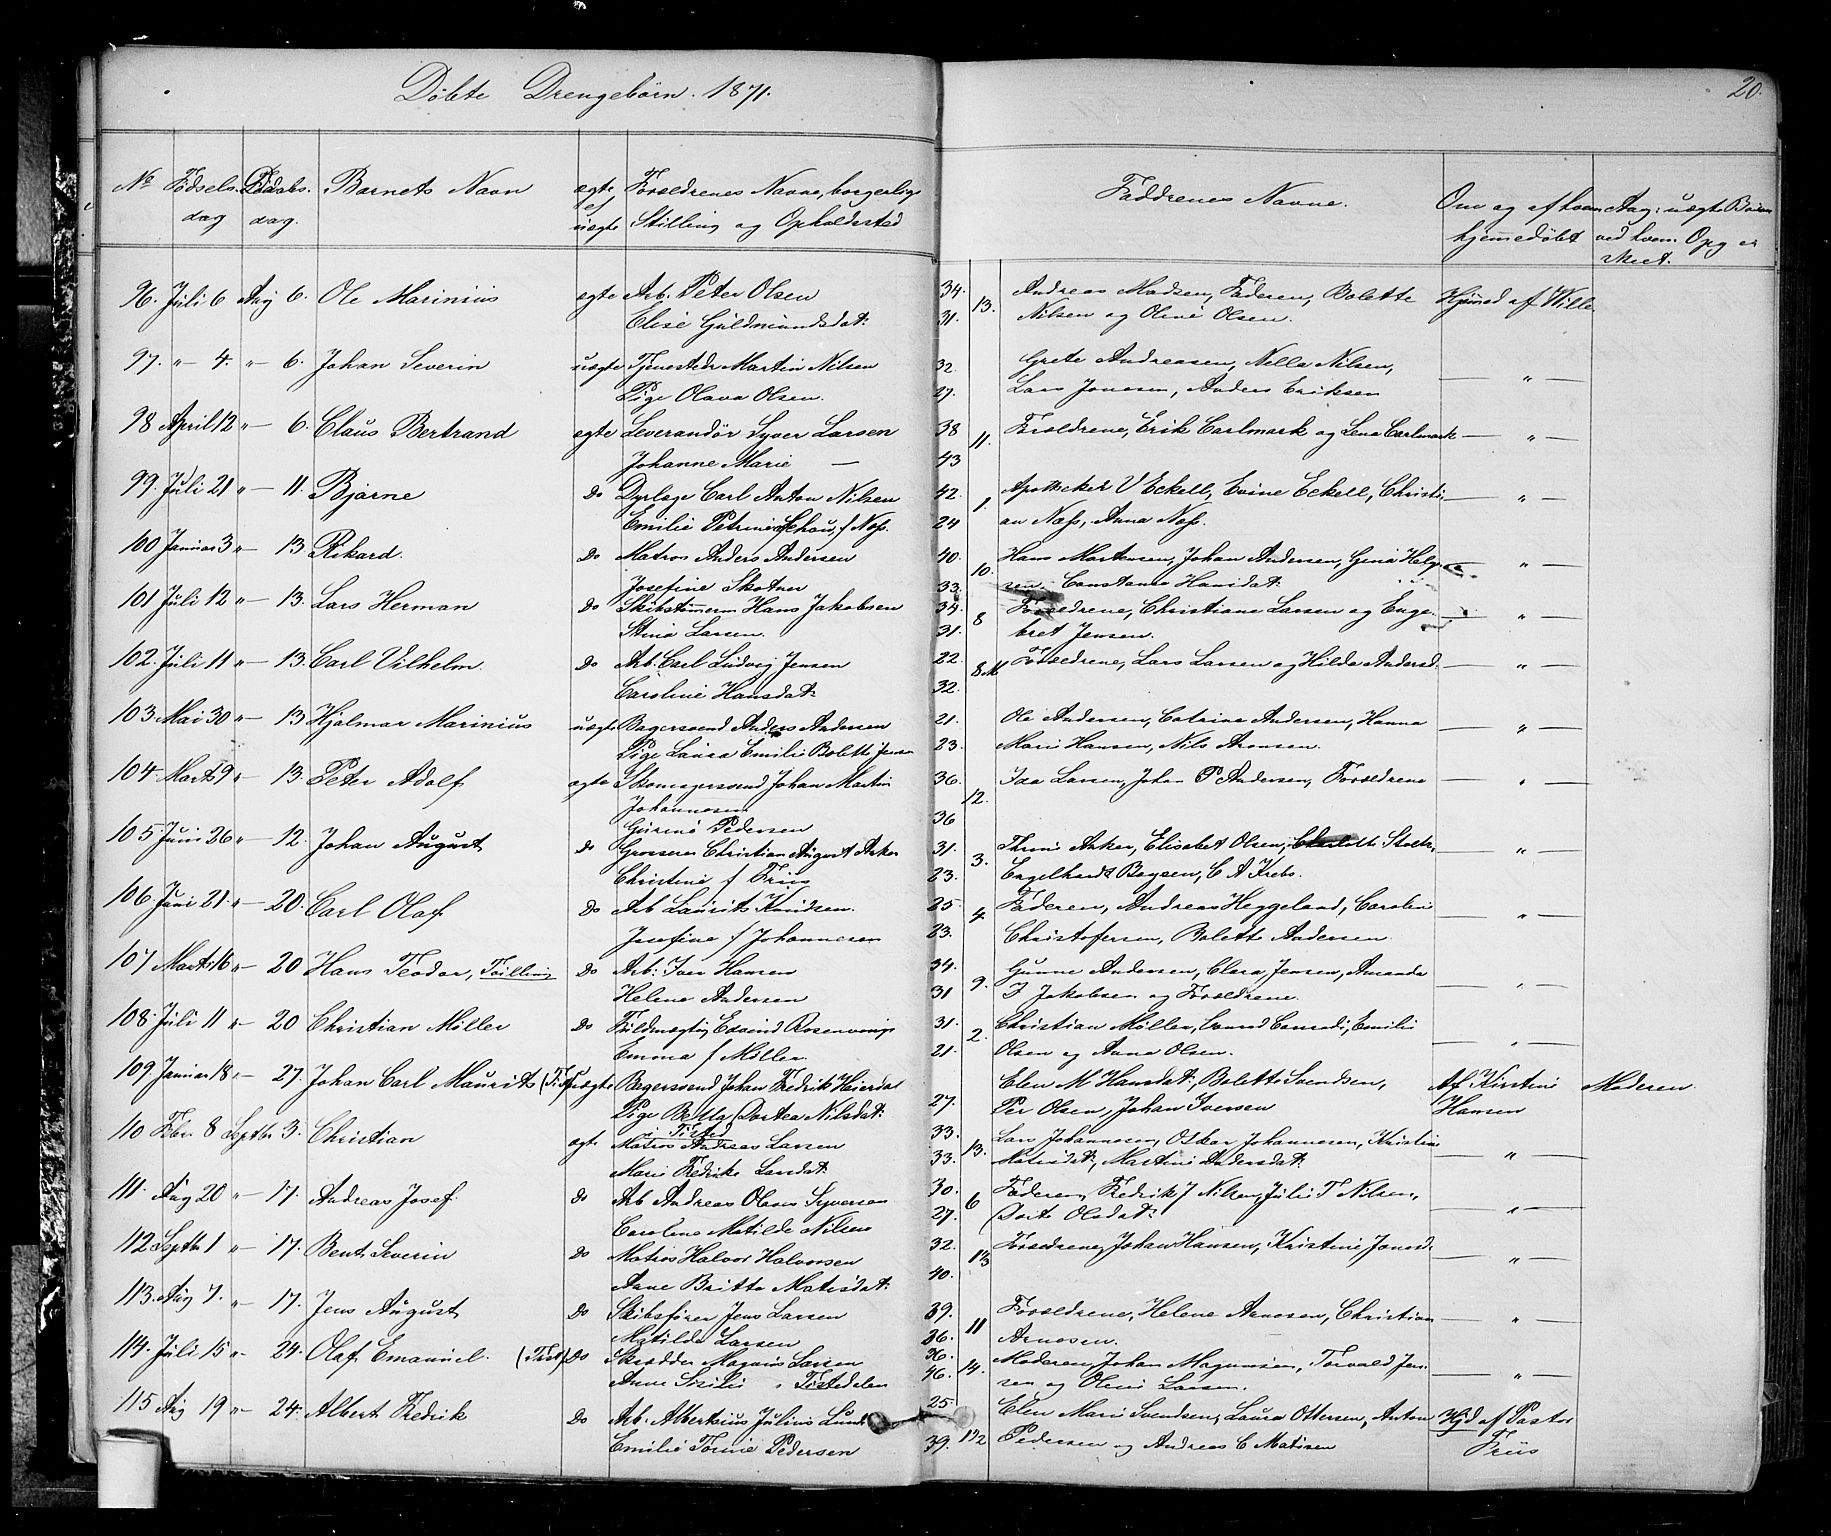 Døbte Drengebørn. 1871.
20.
No Fødsels dag Daabs dag. Barnets Navn ægte el uægte Forældrenes Navne, borgerlige Stilling og Opholdsted Faddrenes Navne. Om og af hvem hjemmedøbt Ang: uægte Børn ved hvem Opg er skeet.
96. Juli 6 Aug 6. Ole Marinius ægte Arb. Peter Olsen 34. 13. Andreas Madsen, Faderen, Bolette Hjemmed af Wille
Elise Guldmundsdat: 31. Nilsen og Oline Olsen.
97. " 4. " 6. Johan Severin uægte Tjenestedr Martin Nilsen 32. Grete Andreasen, Nella Nilsen, — " —
Pige Olava Olsen. 27. Lars Jonesen, Anders Eriksen
98 April 12 " 6. Claus Bertrand ægte Leverandør Syver Larsen 38 11. Forældrene, Erik Carlmark og Lena Carlmark — " —
Johanne Marie — 43
99. Juli 21 " 11. Bjarne Do Dyrlæge Carl Anton Nilsen 42. 1. Apotheker V Eckell, Evine Eckell, Christi — " —
Emilie Petrine Schou, f Næss. 24 an Næss, Anna Næss.
100 Januar 3 " 13 Rikard. Do Matros Anders Andersen 40. 10. Hans Martensen, Johan Andersen, Gina Helge — " —
Josefine Skotner 33. sen, Constance Hansdat:
101 Juli 12 " 13. Lars Herman Do Skibstømmerm Hans Jakobsen 34. 8 Forældrene, Christiane Larsen og Enge — " —
Stina Larsen. 31. bret Jensen.
102. Juli 11 " 13. Carl Vilhelm. Do Arb. Carl Ludvig Jensen 22. 8 M Forældrene, Lars Larsen og Hilda Andersd. — " —
Caroline Hansdat: 32.
103. Mai 30 " 13 Hjalmar Marinius uægte Bagersvend Anders Andersen 21. Ole Andersen, Catrine Andersen, Hanna — " —
Pige Laura Emilie Bolette Jensen 23. Marie Hansen, Nils Aronsen.
104. Marts 9 " 13. Peter Adolf ægte Skomagersvend Johan Martin 36. 12. Ida Larsen, Johan P Andersen, Forældrene — " —
Johannesen
Gurine Pedersen 36
105. Juni 26 " 12. Johan August Do Grosserer Christian August Anker 31. 3. Thrine Anker, Elisabet Olsen, Charlotte — " —
Christine f Friis 23. Engelhardt Boysen, C A Krebs.
106 Juni 21 " 20. Carl Olaf Do Arb Laurits Knudsen. 25. 4. Faderen, Andreas Heggeland, Caroline — " —
Josefine f Johannesen 23. Christofersen, Bolette Andersen.
107 Marts 16 " 20 Hans Teodor, Tvilling Do Arb: Iver Hansen 34. 9. Gunne Andersen, Clara Jensen, Amanda — " —
Helene Andersen 31 J Jakobsen og Forældrene.
108 Juli 11 " 20 Christian Møller Do Fuldmægtig Edvind Rosenvinge 31. 2. Christian Møller, Conrad Conradi, Emilie — " —
Emma f Møller. 21. Olsen og Anna Olsen.
109. Januar 18 " 27. Johan Carl Maurits uægte Bagersvend Johan Fredrik Heierdal Elen M Hansdat: Bolette Svendsen, Af Kirstine Moderen.
Pige Dortea Nilsdat: 27. Per Olsen, Johan Iversen Hansen
i Tistedl
110 Febr. 8 Septbr 3. Christian ægte Matros Andreas Larsen 33. 13. Lars Johannesen, Oskar Johannesen, Kristine — " —
Marie Fredrikke Larsdat: 33. Matisdat:, Martine Andersdat:
111. Aug 20 " 17. Andreas Josef. Do Arb Andreas Olaus Syversen 30. 6 Faderen, Fredrik J Nilsen, Julie T Nilsen, — " —
Caroline Matilde Nilsen 27. Dorte Olsdat:
112 Septbr 1 " 17. Bent Severin Do Matros Halvor Halvorsen 32. 13 Forældrene, Johan Hansen, Kristine Jonasd. — " —
Anne Britte Matisdat: 40.
113. Aug 7. " 17. Jens August Do Skibsfører Jens Larsen 39. 11 Forældrene, Helene Arnesen, Christian — " —
Matilde Larsen 36. Arnesen.
114. Juli 15 " 24. Olaf Emanuel. (Tist) Do Skrædder Magnus Larsen 36. 14. Moderen, Johan Magnusen, Torvald Jen — " —
Anne Sisilie i Tistedalen 46. sen og Oline Larsen.
115 Aug 19 " 24. Albert Fredrik Do Arb. Albertius Julius Lund 25. 12 Elen Marie Svendsen, Laura Ottersen, Anton Hjd af Pastor
Emilie Torine Pedersen 39. Pedersen og Andreas C Matisen Friis